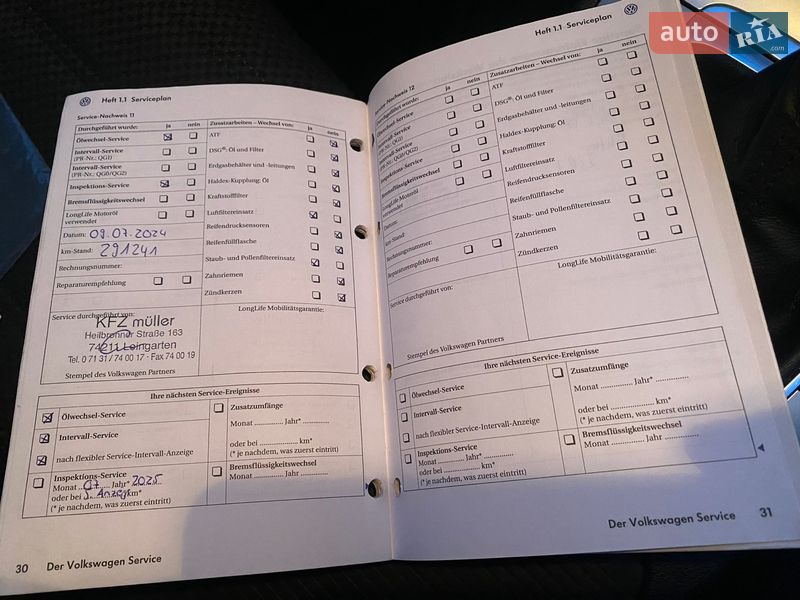 Heft 1.1 Serviceplan
Service-Nachweis 11
Durchgeführt wurde: ja nein
Ölwechsel-Service
Intervall-Service
(PR-Nr.: QG1)
Intervall-Service
(PR-Nr.: QG0/QG2)
Inspektions-Service
Bremsflüssigkeitswechsel
LongLife Motoröl
verwendet
Datum: 09.07.2024
km-Stand: 291241
Rechnungsnummer:
Reparaturempfehlung
Zusatzarbeiten – Wechsel von: ja nein
ATF
DSG®: Öl und Filter
Erdgasbehälter und -leitungen
Haldex-Kupplung: Öl
Kraftstofffilter
Luftfiltereinsatz
Reifendrucksensoren
Reifenfüllflasche
Staub- und Pollenfiltereinsatz
Zahnriemen
Zündkerzen
Service durchgeführt von:
KFZ müller
Heilbronner Straße 163
74211 Leingarten
Tel. 0 71 31 / 74 00 17 - Fax 74 00 19
Stempel des Volkswagen Partners
LongLife Mobilitätsgarantie:
Ihre nächsten Service-Ereignisse
Ölwechsel-Service
Intervall-Service
nach flexibler Service-Intervall-Anzeige
Inspektions-Service
Monat 07. Jahr* 2025
oder bei km*
(* je nachdem, was zuerst eintritt)
Zusatzumfänge
Monat ............ Jahr* ............
oder bei ............ km*
(* je nachdem, was zuerst eintritt)
Bremsflüssigkeitswechsel
Monat ............ Jahr ............
30 Der Volkswagen Service
Heft 1.1 Serviceplan
Service-Nachweis 12
Durchgeführt wurde: ja nein
Ölwechsel-Service
Intervall-Service
(PR-Nr.: QG1)
Intervall-Service
(PR-Nr.: QG0/QG2)
Inspektions-Service
Bremsflüssigkeitswechsel
LongLife Motoröl
verwendet
Datum:
km-Stand:
Rechnungsnummer:
Reparaturempfehlung
Zusatzarbeiten – Wechsel von: ja nein
ATF
DSG®: Öl und Filter
Erdgasbehälter und -leitungen
Haldex-Kupplung: Öl
Kraftstofffilter
Luftfiltereinsatz
Reifendrucksensoren
Reifenfüllflasche
Staub- und Pollenfiltereinsatz
Zahnriemen
Zündkerzen
Service durchgeführt von:
Stempel des Volkswagen Partners
LongLife Mobilitätsgarantie:
Ihre nächsten Service-Ereignisse
Ölwechsel-Service
Intervall-Service
nach flexibler Service-Intervall-Anzeige
Inspektions-Service
Monat ............ Jahr* ............
oder bei ............ km*
(* je nachdem, was zuerst eintritt)
Zusatzumfänge
Monat ............ Jahr* ............
oder bei ............ km*
(* je nachdem, was zuerst eintritt)
Bremsflüssigkeitswechsel
Monat ............ Jahr ............
Der Volkswagen Service 31
auto RIA
.com